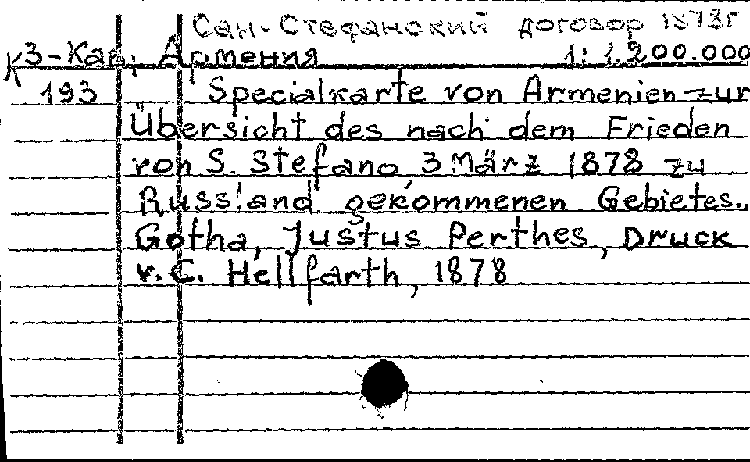 Сан-Стефанский договор 1878г
К3-Кав, Армения 1:1.200.000
193 Specialkarte von Armenien zur
Übersicht des nach dem Frieden
von S. Stefano, 3 März 1878 zu
Russland gekommenen Gebietes.
Gotha, Justus Perthes, Druck
v. C. Hellfarth, 1878